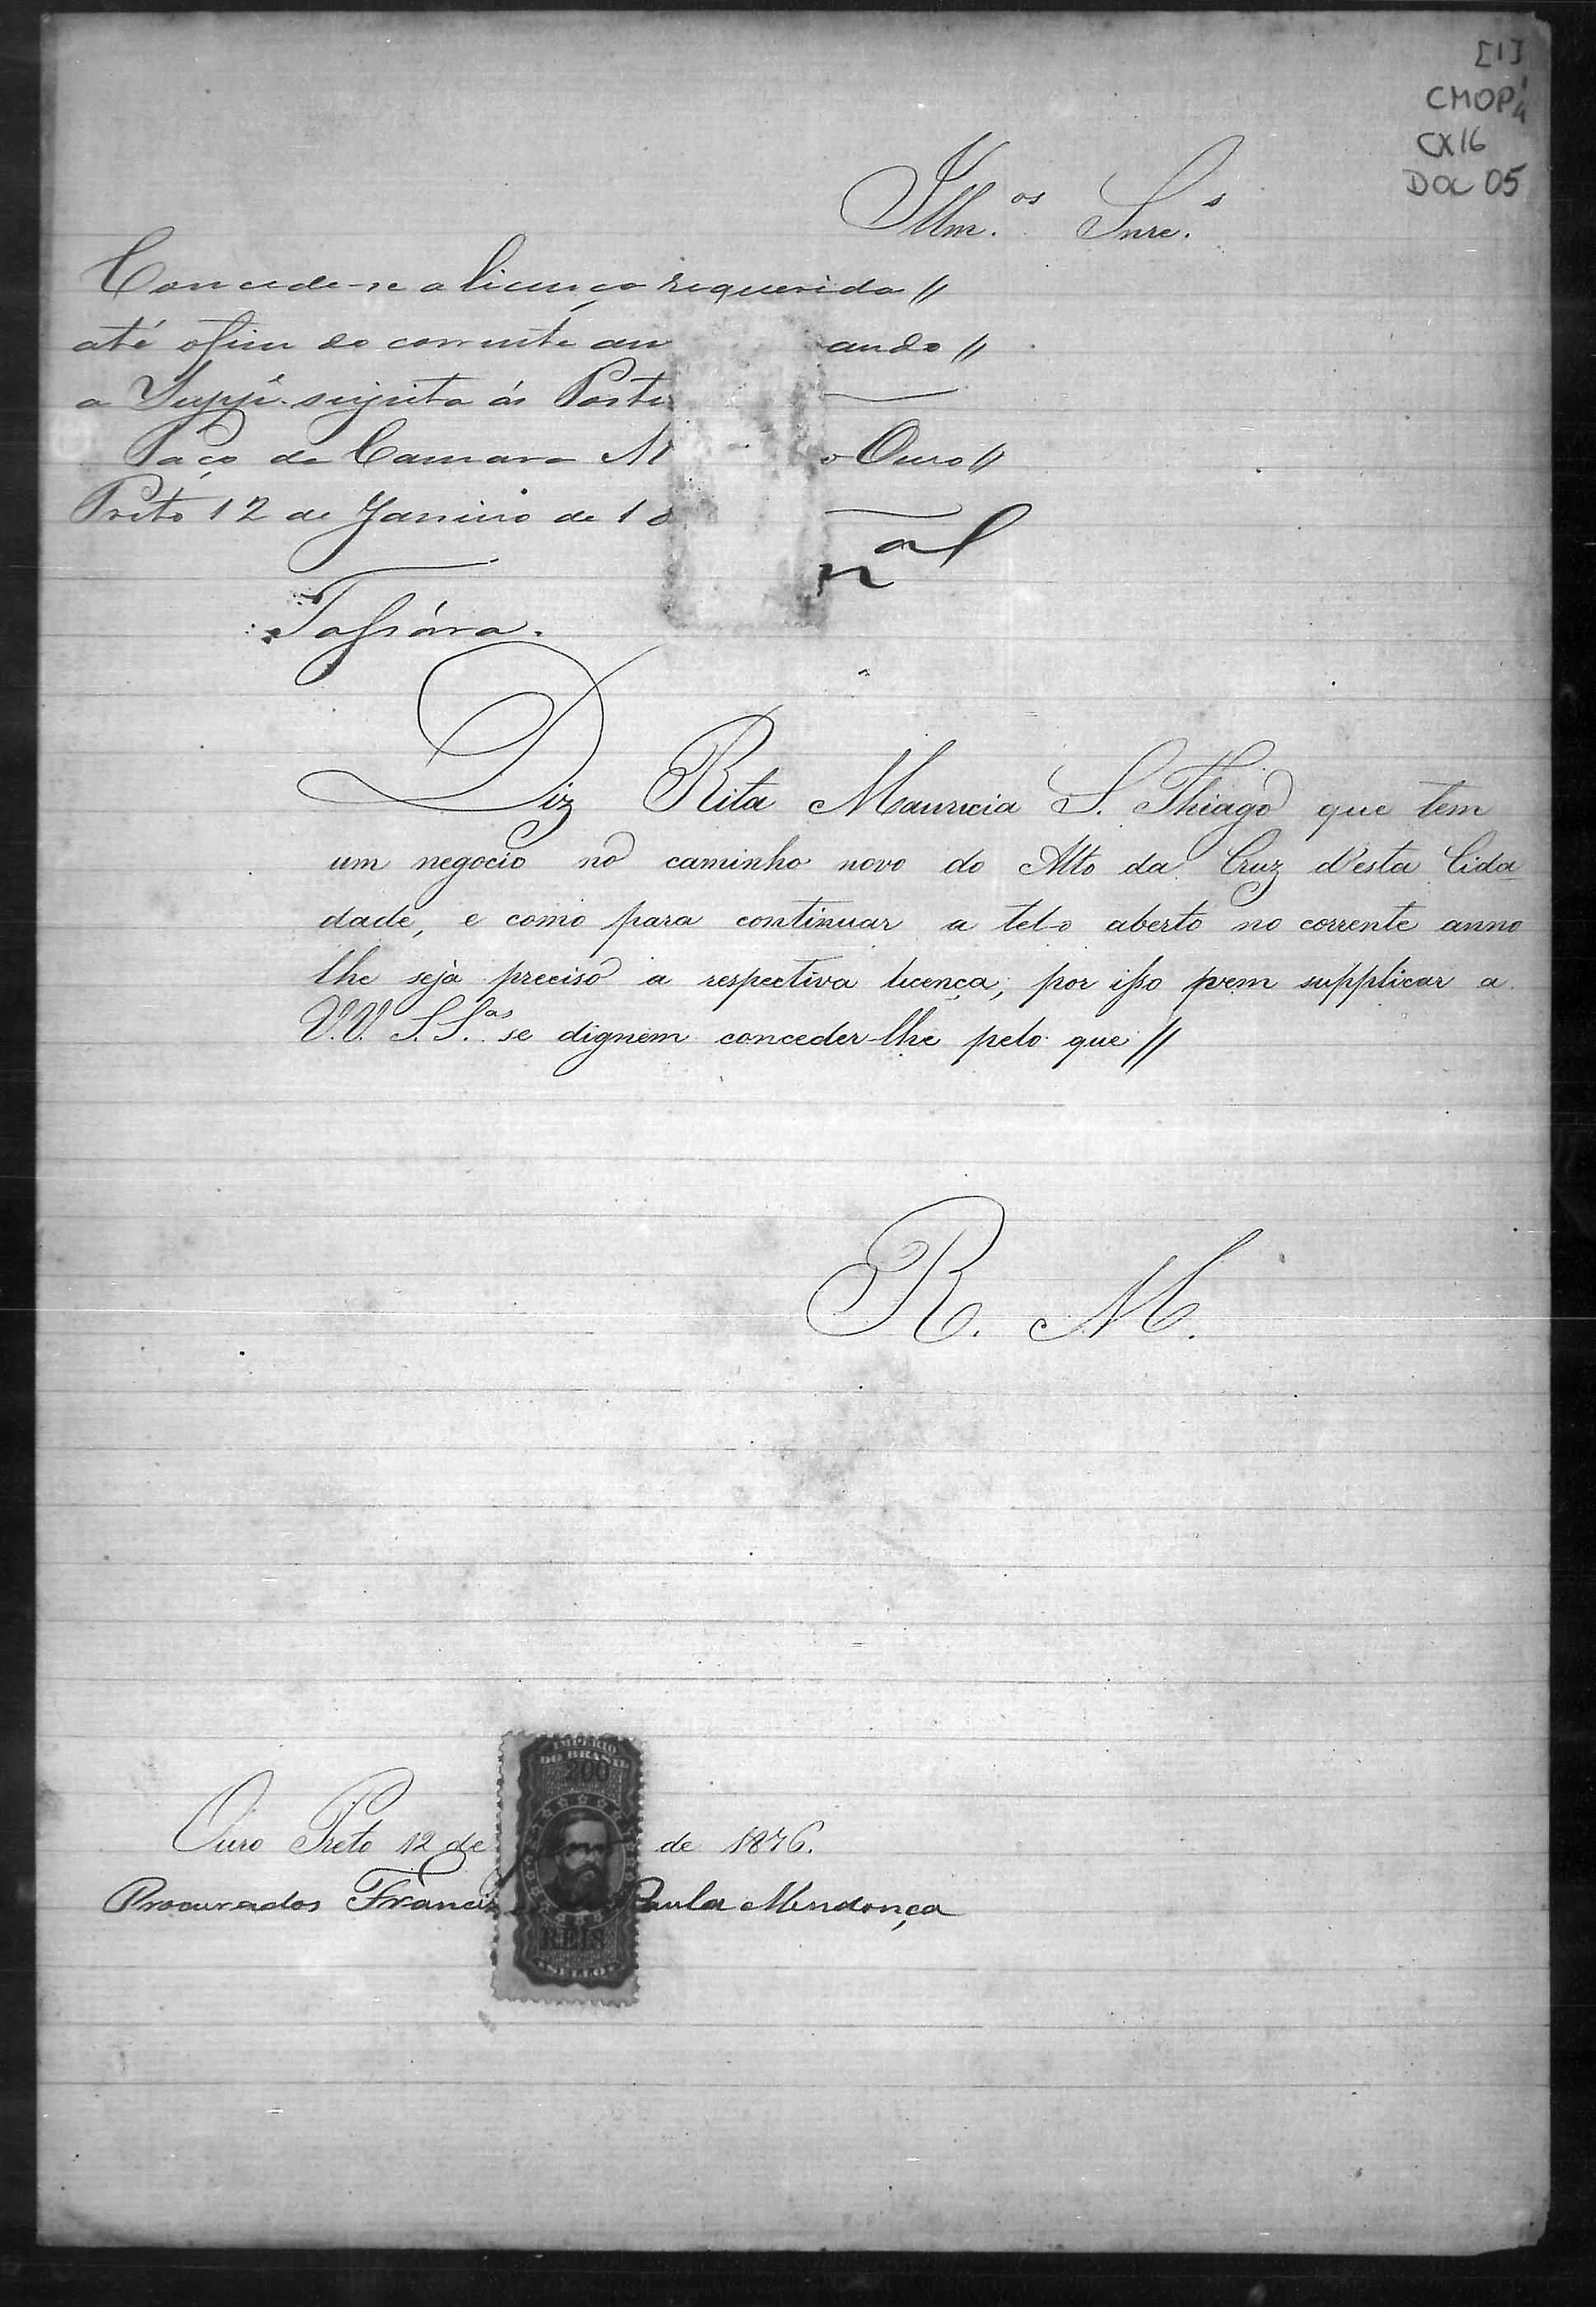 [1]
CMOP
CX16
DOC 05
Illm.os Snre.s
Concede-se a licença requerida //
até o fim do corrente an ando //
a Suppe. sujeita ás Postu
Paço da Camara M o Ouro //
Preto 12 de Janeiro de 18
Tassára.
Diz Rita Mauricia S. Thiago que tem
um negocio no caminho novo do Alto da Cruz d'esta Cida
dade, e como para continuar a tel-o aberto no corrente anno
lhe seja preciso a respectiva licença, por isso vem supplicar a
V.V. S.S.as se dignem conceder-lhe pelo que //
R. M.
IMPERIO
DO BRASIL
200
Ouro Preto 12 de de 1876.
Procurador Francis Paula Mendonça
REIS
SELLO